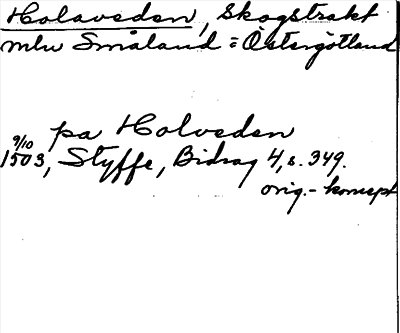 Holaveden, Skogstrakt
mln Småland = Östergötland
pa Holveden
9/10
1503, Styffe, Bidrag 4, s. 349.
orig.- koncept